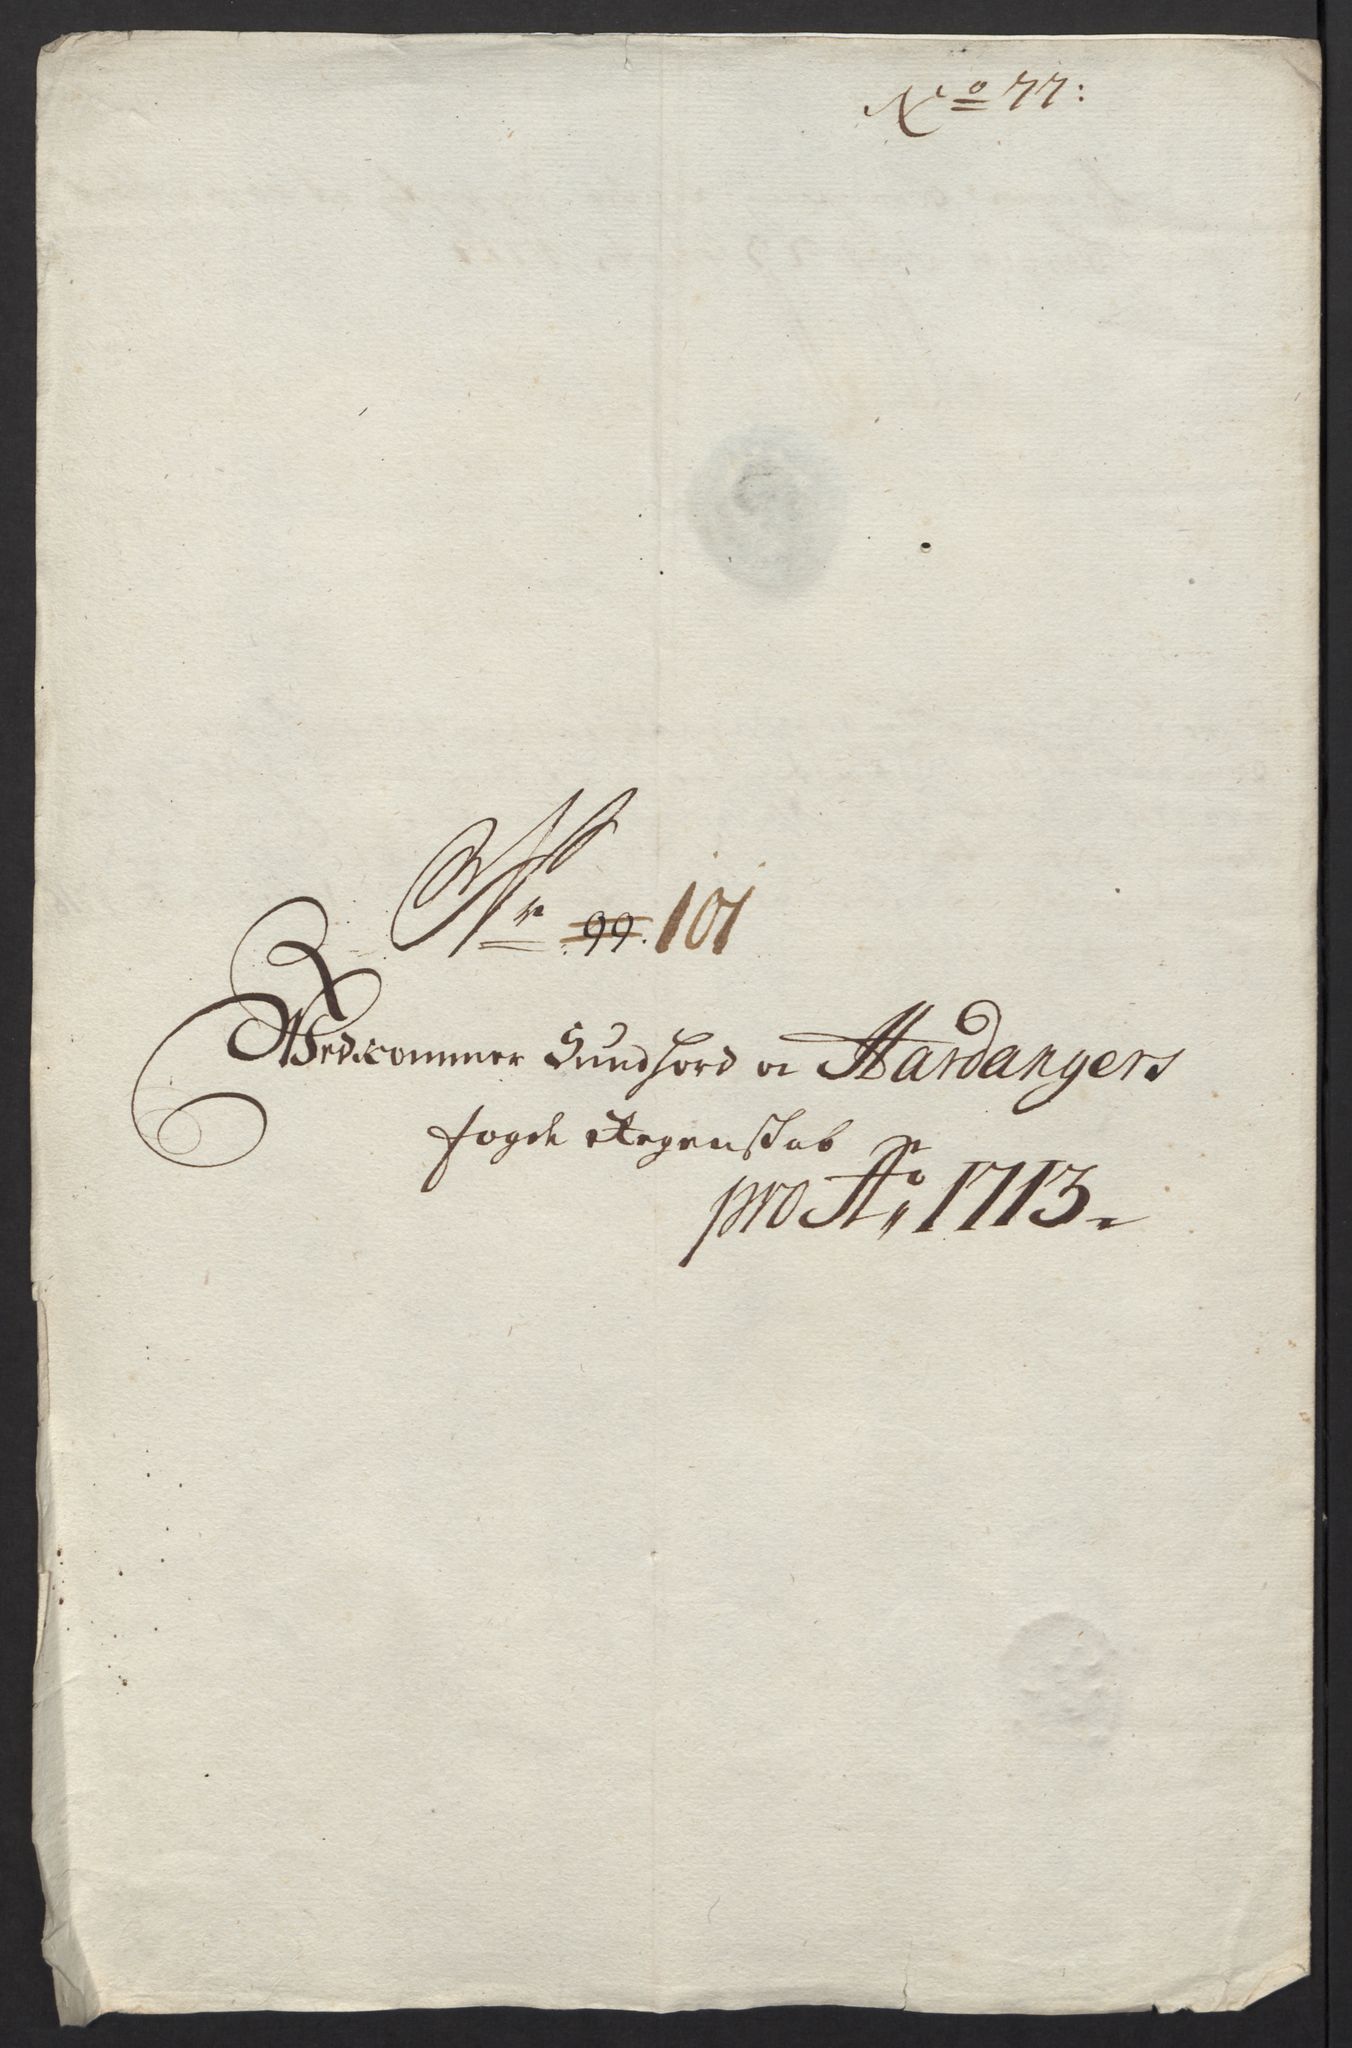 No 77:
Nr 99. 101
Vedkommer Sundhord oc Hardangers
fogde Regenskab
pro Ao 1713